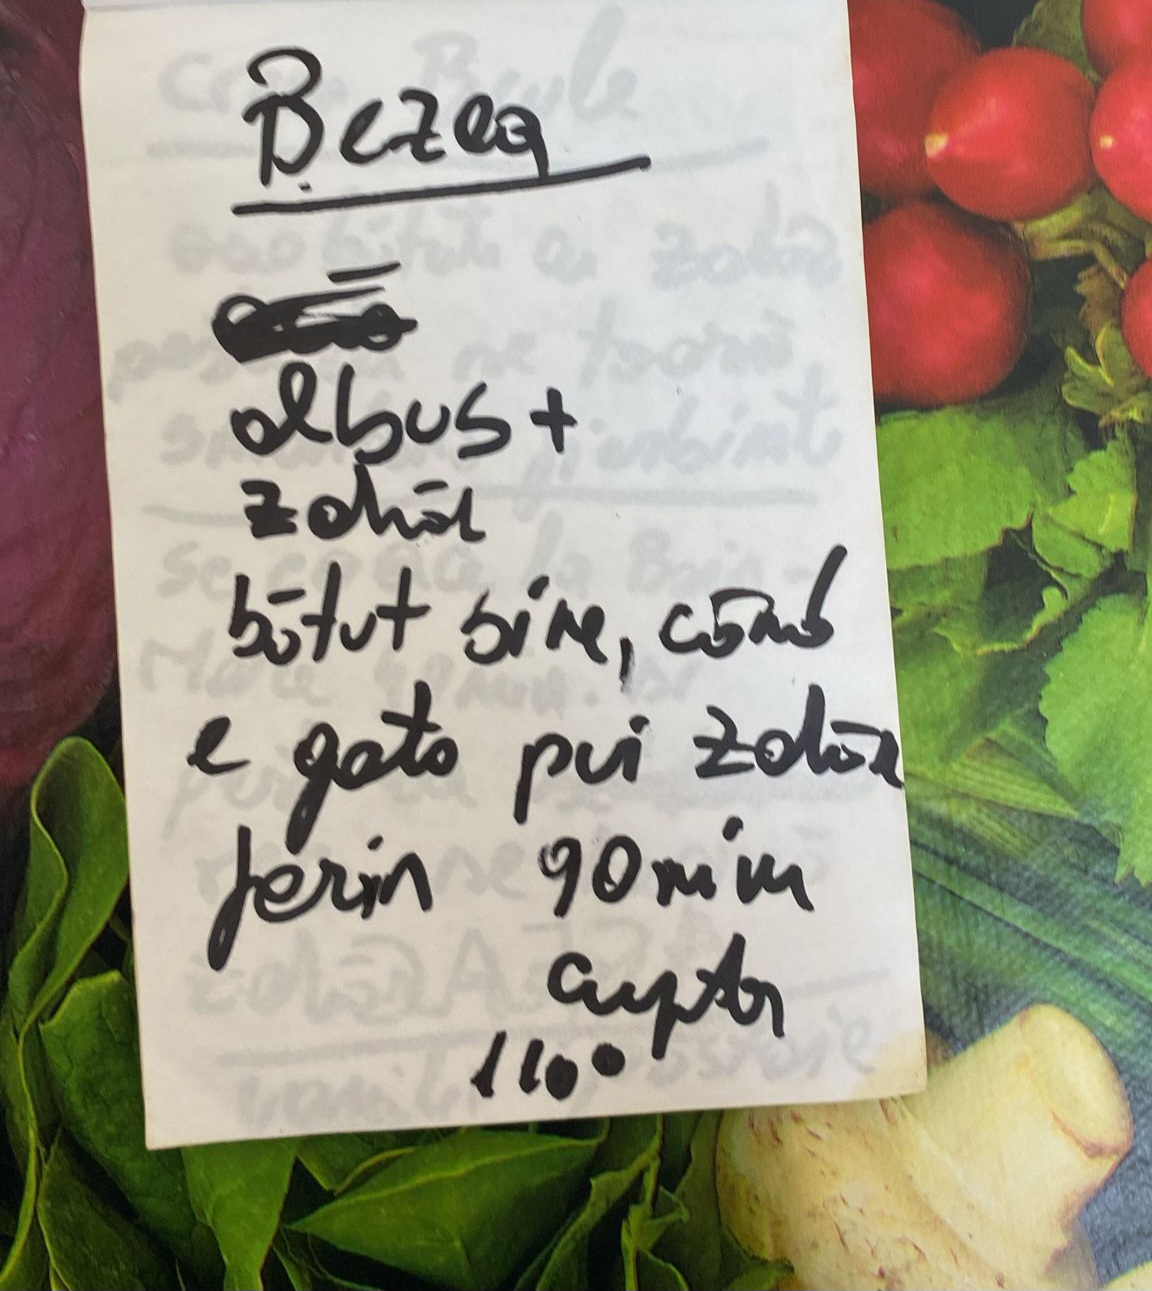 Bezea
albus +
zahăr
bătut bine, când
e gata pui zahăr
ferin 90 min
cuptor
110°